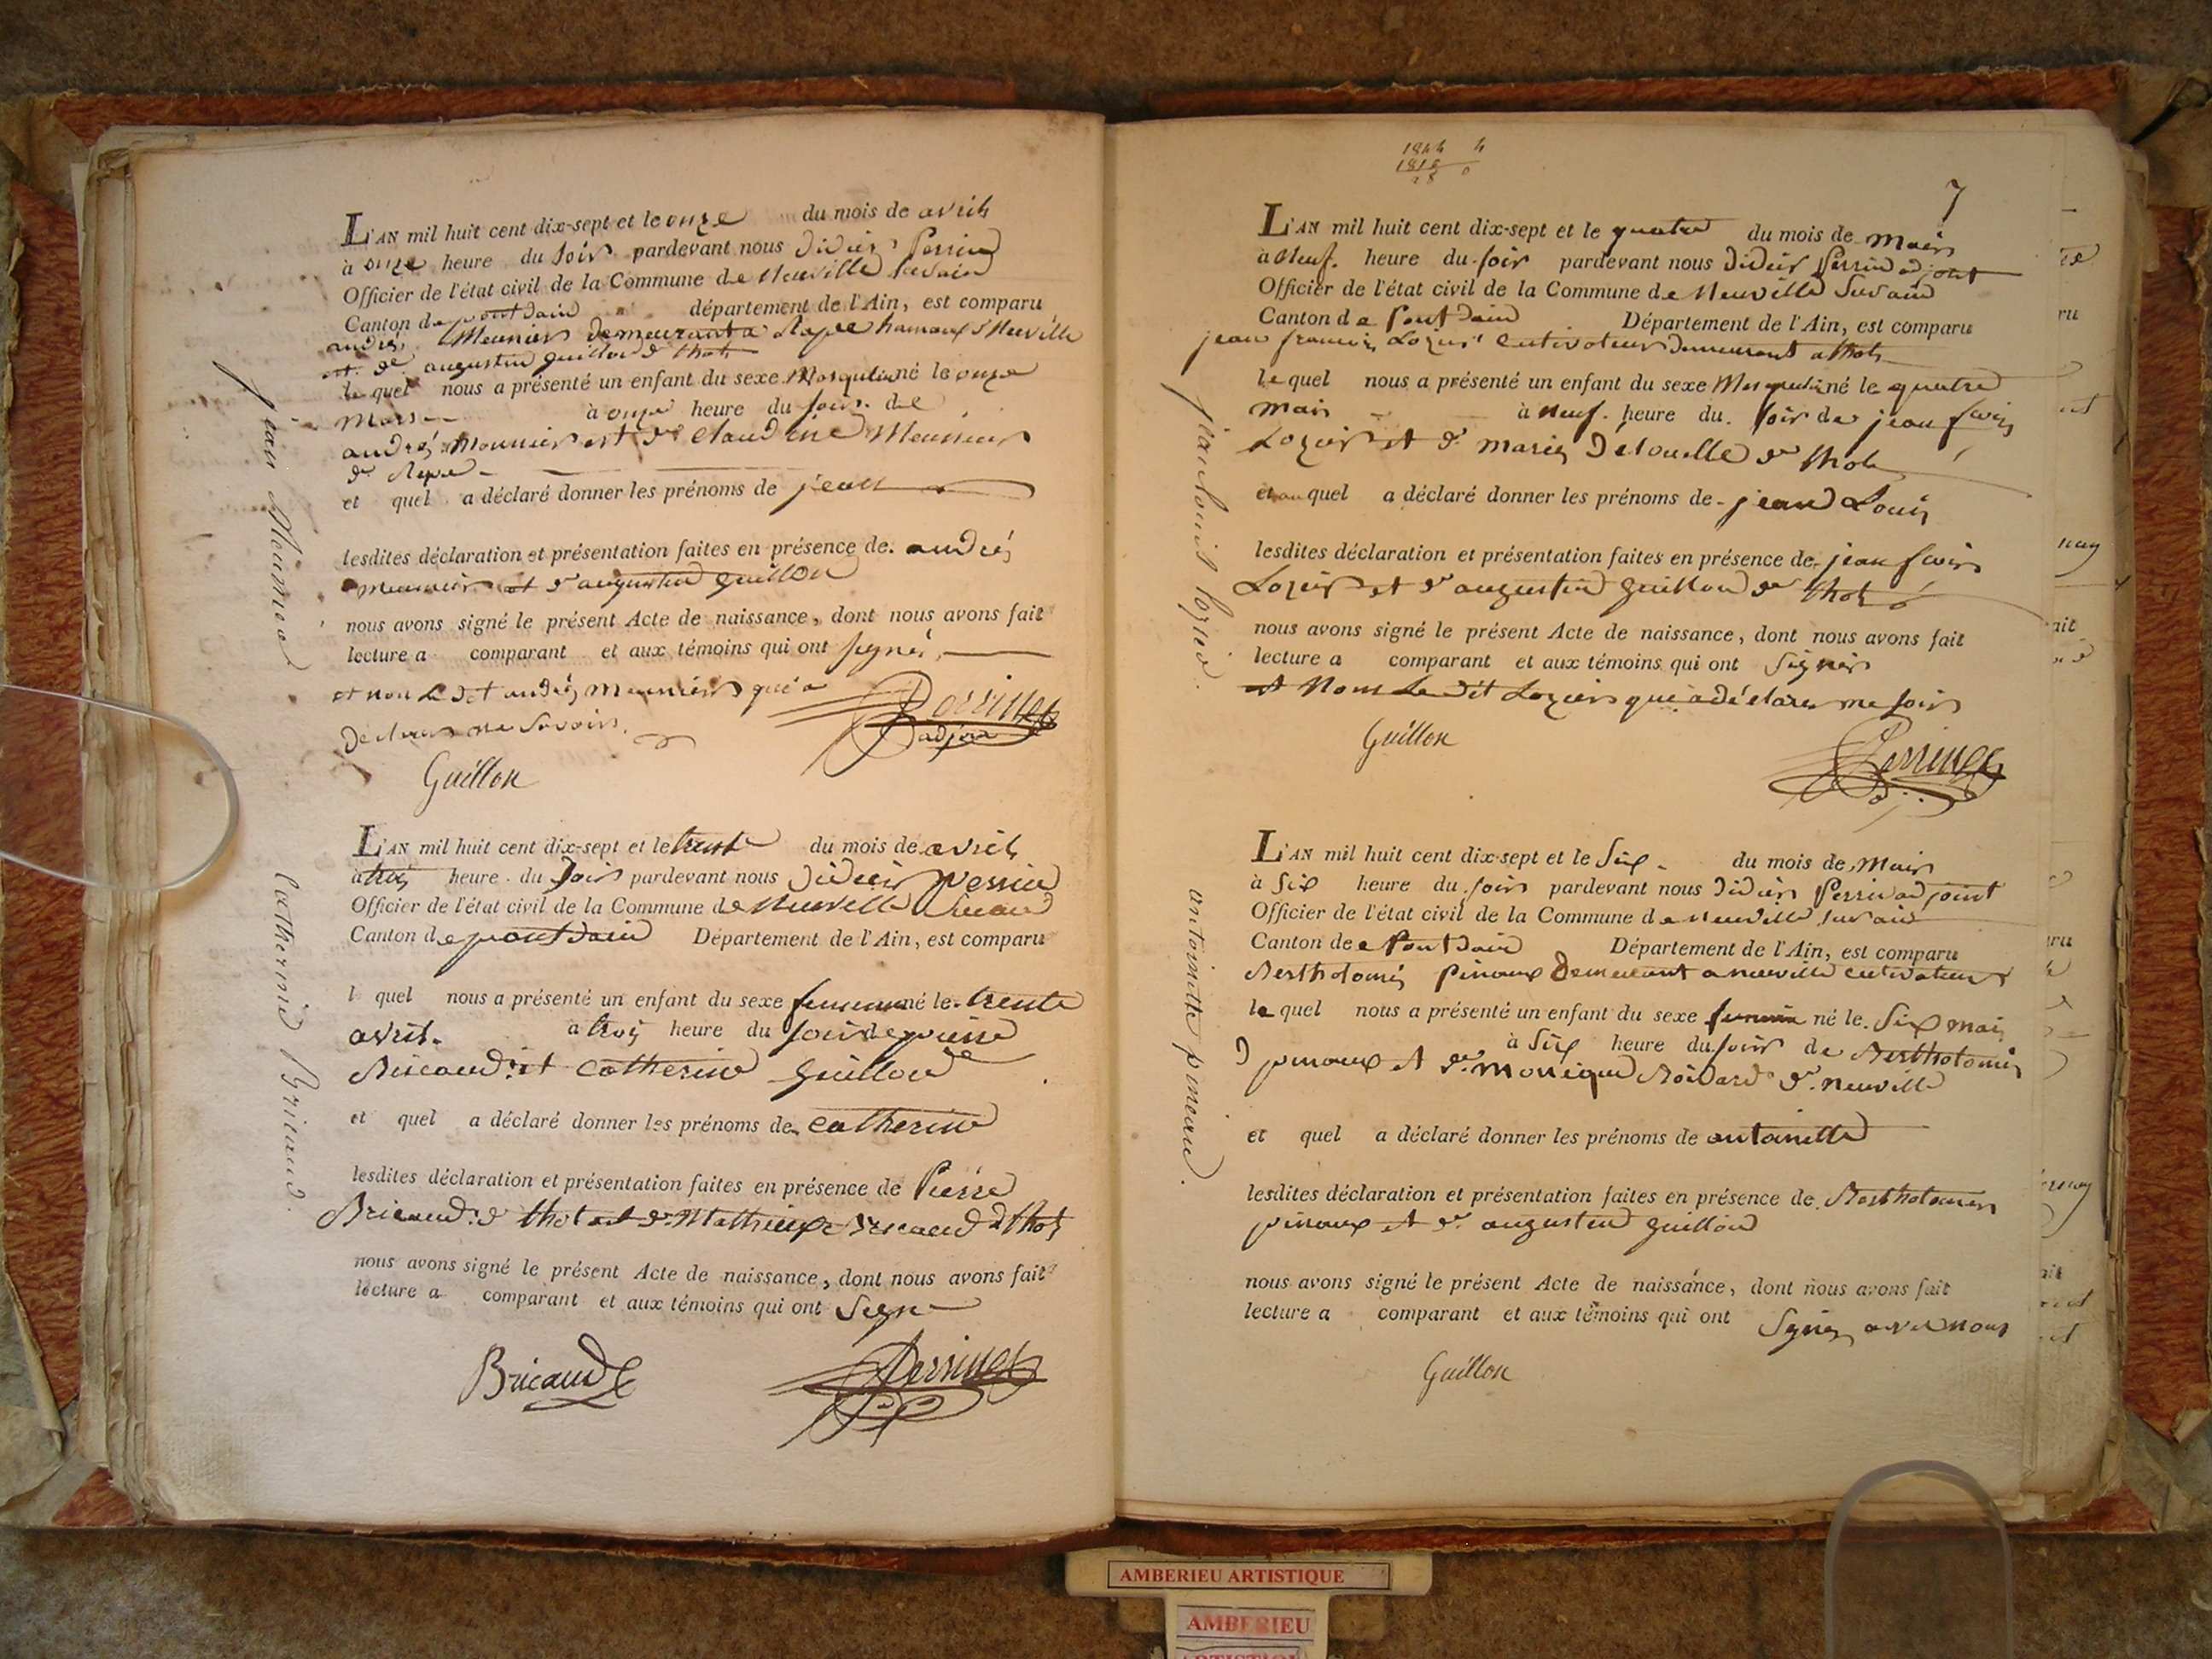 L'AN mil huit cent dix-sept et le onze du mois de avril
à onze heure du soir pardevant nous Didier Perrin
Officier de l'état civil de la Commune de Neuville sur ain
Canton de pont dain département de l'Ain, est comparu
andré Meunier demeurant a hamaux Neuville
et de augustin guillon de thol
le quel nous a présenté un enfant du sexe Masqulin né le onze
Mars à onze heure du soir de
andré Mounier et de claudine Meunier
de
et quel a déclaré donner les prénoms de jean
lesdites déclaration et présentation faites en présence de andré
meunier et d'augustin guillon
nous avons signé le présent Acte de naissance, dont nous avons fait
lecture a comparant et aux témoins qui ont signé
et non Le dit andré meunier qui a
declaré ne savoir
Perrin
adjoin
Guillon
jean Meunier
L'AN mil huit cent dix-sept et le trente du mois de avril
a troi heure du Soir pardevant nous Didier perrin
Officier de l'état civil de la Commune de Neuville
Canton de pont dain Département de l'Ain, est comparu
l quel nous a présenté un enfant du sexe né le trente
avril. à troi heure du soir de pierre
Bricaud et catherine guillon
et quel a déclaré donner les prénoms de catherine
lesdites déclaration et présentation faites en présence de Pierre
Bricaud d thol et de Mathieux Bricaud d thol
nous avons signé le présent Acte de naissance, dont nous avons fait
lecture a comparant et aux témoins qui ont Signe
Bricaud
Perrin
catherine Bricaud.
1844 4
1818 0
28
7
L'AN mil huit cent dix-sept et le quatre du mois de mais
à neuf heure du soir pardevant nous Didier Perrin adjoint
Officier de l'état civil de la Commune de Neuville Sur ain
Canton de Pont dain Département de l'Ain, est comparu
jean francois Lozier cultivateur demeurant a thol
le quel nous a présenté un enfant du sexe Masqulin né le quatre
mai à neuf heure du soir de jean
Lozier et de marie de thol
et au quel a déclaré donner les prénoms de jean Loui
lesdites déclaration et présentation faites en présence de jean
Lozier et d'augustin guillon de thol
nous avons signé le présent Acte de naissance, dont nous avons fait
lecture a comparant et aux témoins qui ont Signés
et Nom Le dit Lozier qui a déclare ne
Guillon
Perrin
jean louis lozier.
L'AN mil huit cent dix-sept et le Six du mois de Mais
à Six heure du soir pardevant nous Didier Perrin adjoint
Officier de l'état civil de la Commune de neuville sur ain
Canton de Pont dain Département de l'Ain, est comparu
Bertholomé pinaux demeurant a neuville cultivateur
le quel nous a présenté un enfant du sexe né le Six mai
à Six heure du soir de Bertholomé
pinaux et de monique de neuville
et quel a déclaré donner les prénoms de antoinette
lesdites déclaration et présentation faites en présence de Bertholomé
pinaux et d'augustin guillon
nous avons signé le présent Acte de naissance, dont nous avons fait
lecture a comparant et aux témoins qui ont Signé avec nous
Guillon
antoinette pineaud.
AMBERIEU ARTISTIQUE
AMBERIEU
ARTISTIQUE